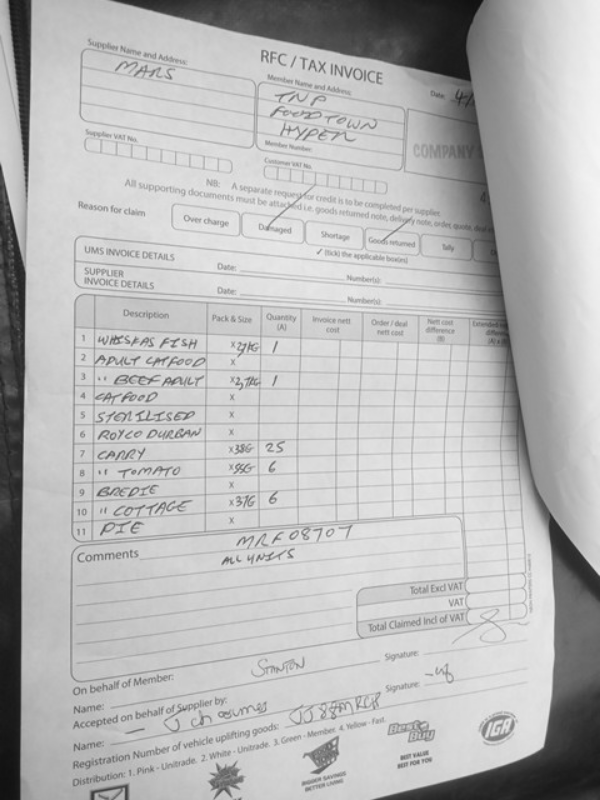 RFC / TAX INVOICE
Supplier Name and Address:
MARS
Member Name and Address:
TNP
FOODTOWN
HYPER
Member Number:
Date: 4/
COMPANY
Supplier VAT No.
Customer VAT No.
NB: A separate request for credit is to be completed per supplier.
All supporting documents must be attached i.e. goods returned note, delivery note, order, quote, deal
Reason for claim
Over charge
Damaged
Shortage
Goods returned
Tally
✓ (tick) the applicable box(es)
UMS INVOICE DETAILS Date: Number(s):
SUPPLIER INVOICE DETAILS Date: Number(s):
Description Pack & Size Quantity (A) Invoice nett cost Order / deal nett cost Nett cost difference (B) Extended
1 WHISKAS FISH x 2,7KG 1
2 ADULT CATFOOD x
3 " BEEF ADULT x 2,7KG 1
4 CATFOOD x
5 STERILISED x
6 ROYCO DURBAN x
7 CARRY x 38G 25
8 " TOMATO x 55G 6
9 BREDIE x
10 " COTTAGE x 37G 6
11 PIE x
Comments
MRF08707
ALL UNITS
Total Excl VAT
VAT
Total Claimed Incl of VAT
On behalf of Member:
Name: STANTON Signature:
Accepted on behalf of Supplier by:
Name: Signature:
Registration Number of vehicle uplifting goods:
Distribution: 1. Pink - Unitrade. 2. White - Unitrade. 3. Green - Member. 4. Yellow - Fast.
BIGGER SAVINGS
BETTER LIVING
Best Buy
BEST VALUE
BEST FOR YOU
IGA